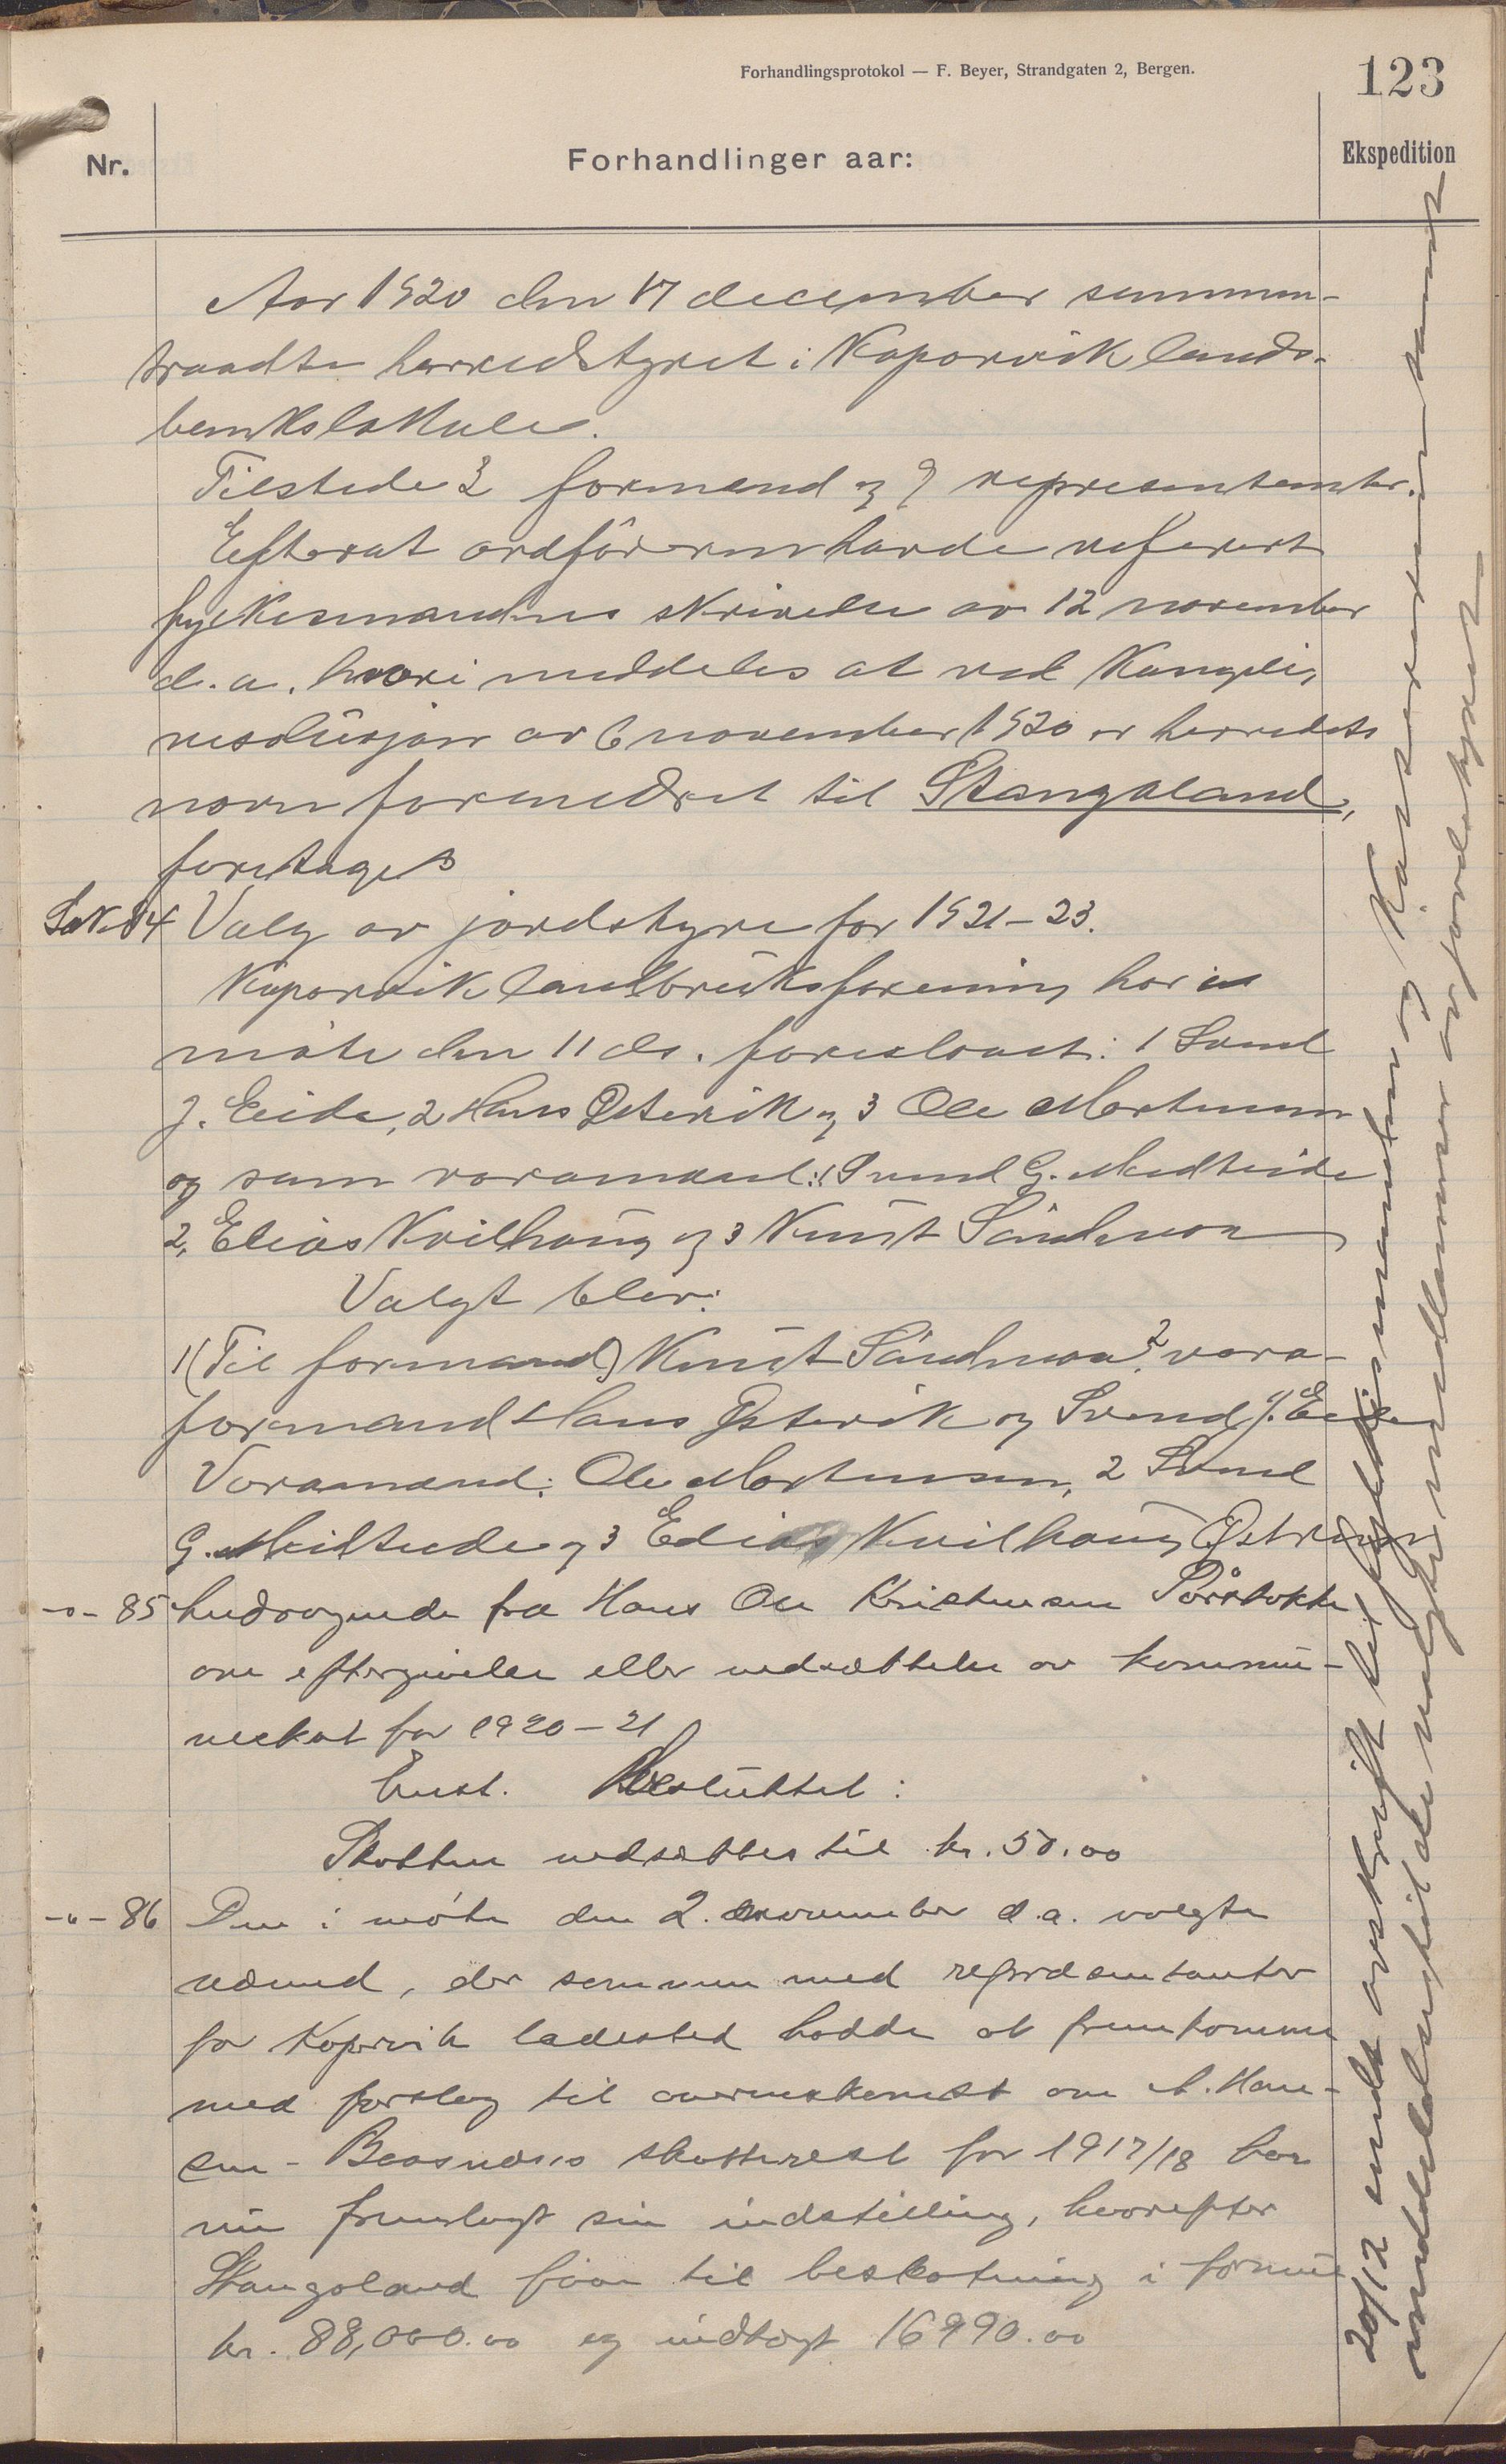 Forhandlingsprotokol — F. Beyer, Strandgaten 2, Bergen.
123
Nr.
Forhandlinger aar:
Ekspedition
Aar 1920 den 17 december sammen-
traadte herredstyret i Kopervik lands-
banks lokale.
Tilstede 3 formænd og 9 representanter.
Efterat ordføreren havde referert
fylkesmandens skrivelse av 12 november
d.a. hvori meddeles at ved Kongelig
resolusjon av 6 november 1920 er herredets
navn forandret til Stangaland,
foretages
Sak 84 Valg av jordstyre for 1921-23.
Kopervik landbruksforening har i
møte den 11 ds. foreslaaet: 1 Svend
J. Eide, 2 Hans Østevik og 3 Ole Mortensen
og som varamænd: 1 Svend G. Medheide
2, Elias Kvilhaug og 3 Knut Sandmoa
Valgt blev:
1 (Til formand) Knut Sandmoa 2 vara-
formand Hans Østevik og Svend J. Eide
Varamænd: Ole Mortensen, 2 Svend
G. Medheide og 3 Elias Kvilhaug
-"- 85 Andragende fra Hans Ole Kristensen
om eftergivelse eller nedsættelse av kommu-
neskat for 1920-21
Enst. Besluttet:
Skatten nedsættes til kr. 50.00
-"- 86 Den i møte den 2. november d.a. valgte
nævnd, der sammen med repræsentanter
for Kopervik ladested hadde at fremkomme
med forslag til overenskomst om A. Han-
sen - skatterest for 1917/18 har
nu fremlagt sin indstilling, hvorefter
Stangaland faar til beskatning i formue
kr. 88,000.00 og indtægt 16990.00
20/12 sendt avskrift til fylkesmanden og
meddelelse til de valgte medlemmer av jordstyret